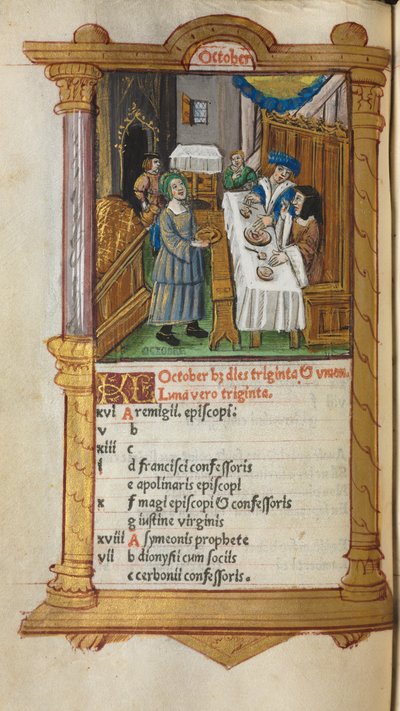 October
OCTOBRE
KL October hʒ dies triginta & vnum.
Luna vero triginta.
xvi A remigii. episcopi.
v b
xiii c
i d francisci confessoris
e apolinaris episcopi
x f magi episcopi & confessoris
g iustine virginis
xviii A symeonis prophete
vii b dionysii cum sociis
c cerbonii confessoris.